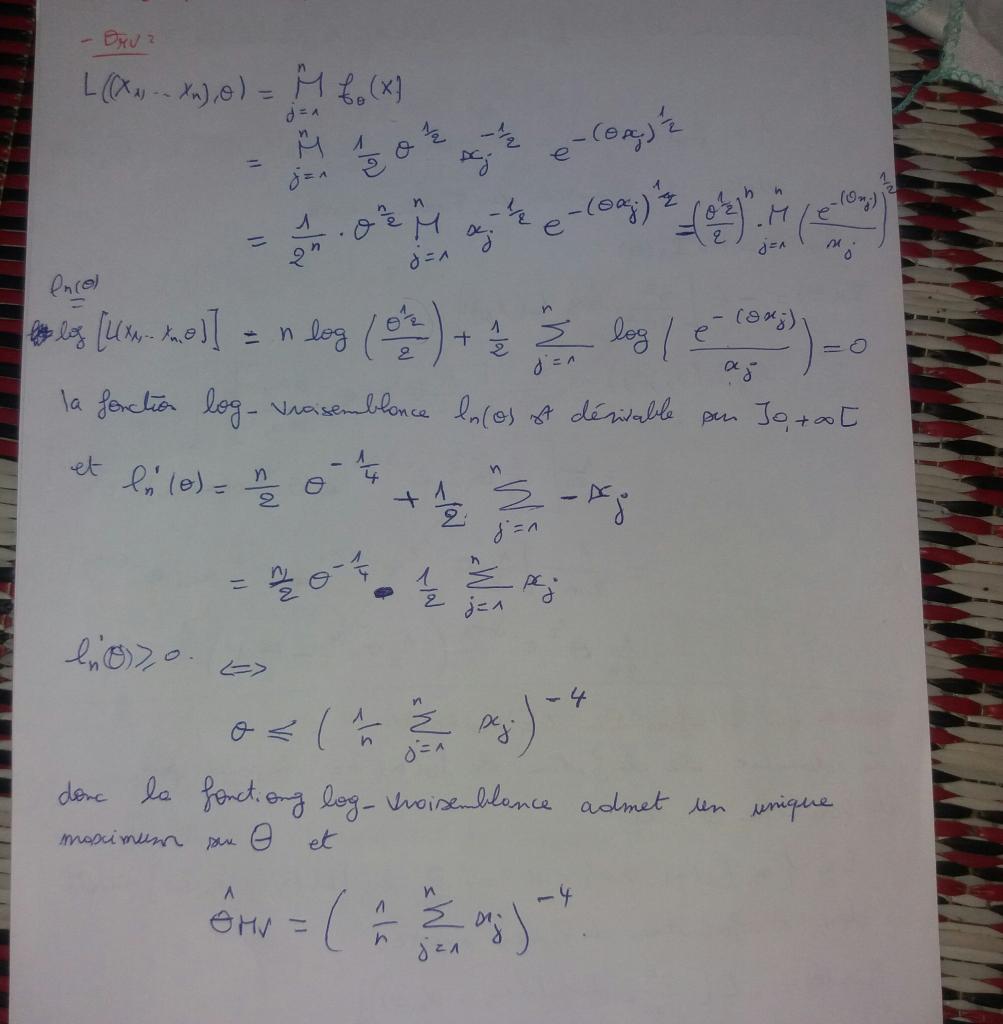 - θ_MV ?
L((X₁, .. Xₙ), θ) = ∏_{j=1}^{n} f_θ(x)
= ∏_{j=1}^{n} 1/2 θ^{1/2} x_j^{-1/2} e^{-(θx_j)^{1/2}}
= 1/2ⁿ · θ^{n/2} ∏_{j=1}^{n} x_j^{-1/2} e^{-(θx_j)^{1/2}} = (θ^{1/2}/2)^n · ∏_{j=1}^{n} (e^{-(θx_j)}/x_j)^{1/2}
ℓn(θ)
=
log [L(x₁, .. xₙ, θ)] = n log (θ^{1/2}/2) + 1/2 ∑_{j=1}^{n} log (e^{-(θx_j)}/x_j) = 0
la fonction log-vraisemblance ℓn(θ) est dérivable sur ]0, +∞[
et ℓn'(θ) = n/2 θ^{-1/4} + 1/2 ∑_{j=1}^{n} - x_j
= n/2 θ^{-1/4} - 1/2 ∑_{j=1}^{n} x_j
ℓn'(θ) ≥ 0. ⇔
θ ≤ (1/n ∑_{j=1}^{n} x_j)^{-4}
donc la fonctiong log-vraisemblance admet un unique
maximum sur Θ et
θ̂_MV = (1/n ∑_{j=1}^{n} x_j)^{-4}.